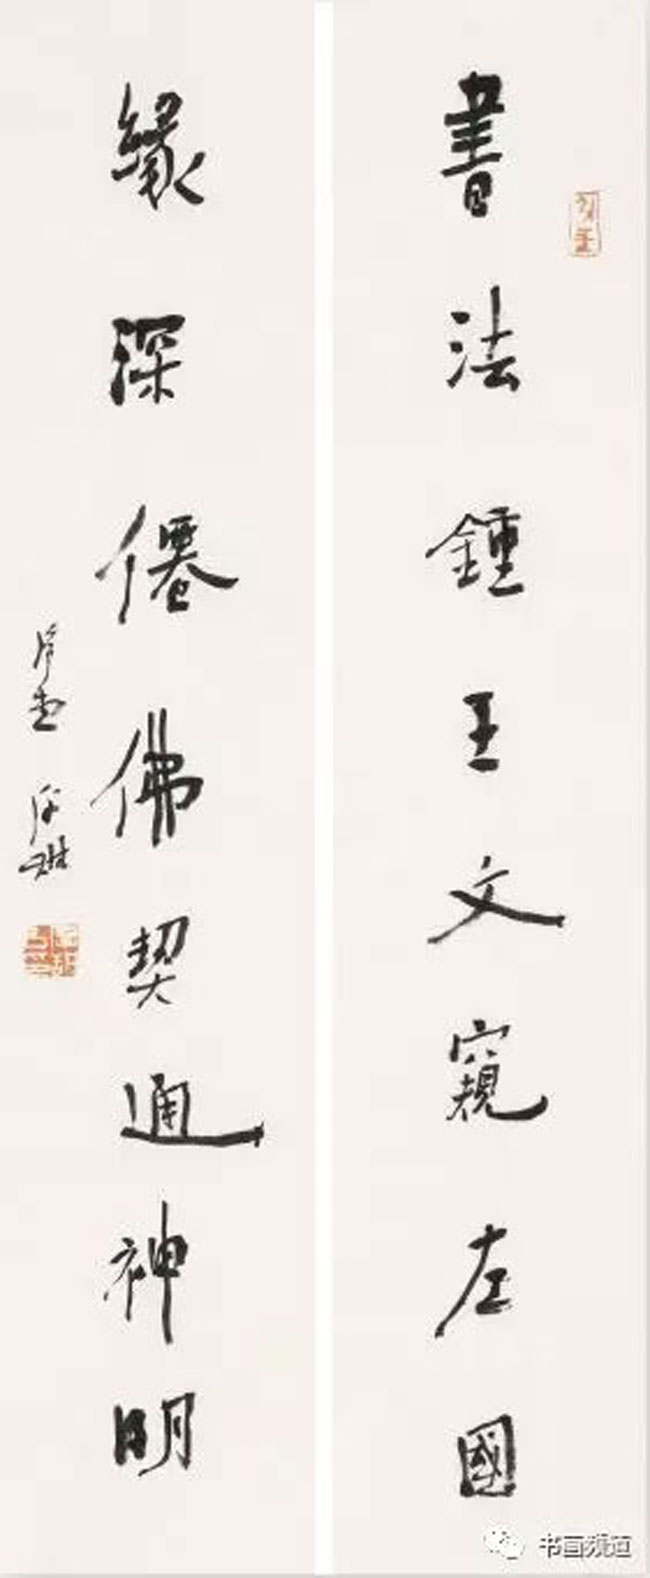 書法鍾王文窺左國
緣深僊佛契通神明
书画频道